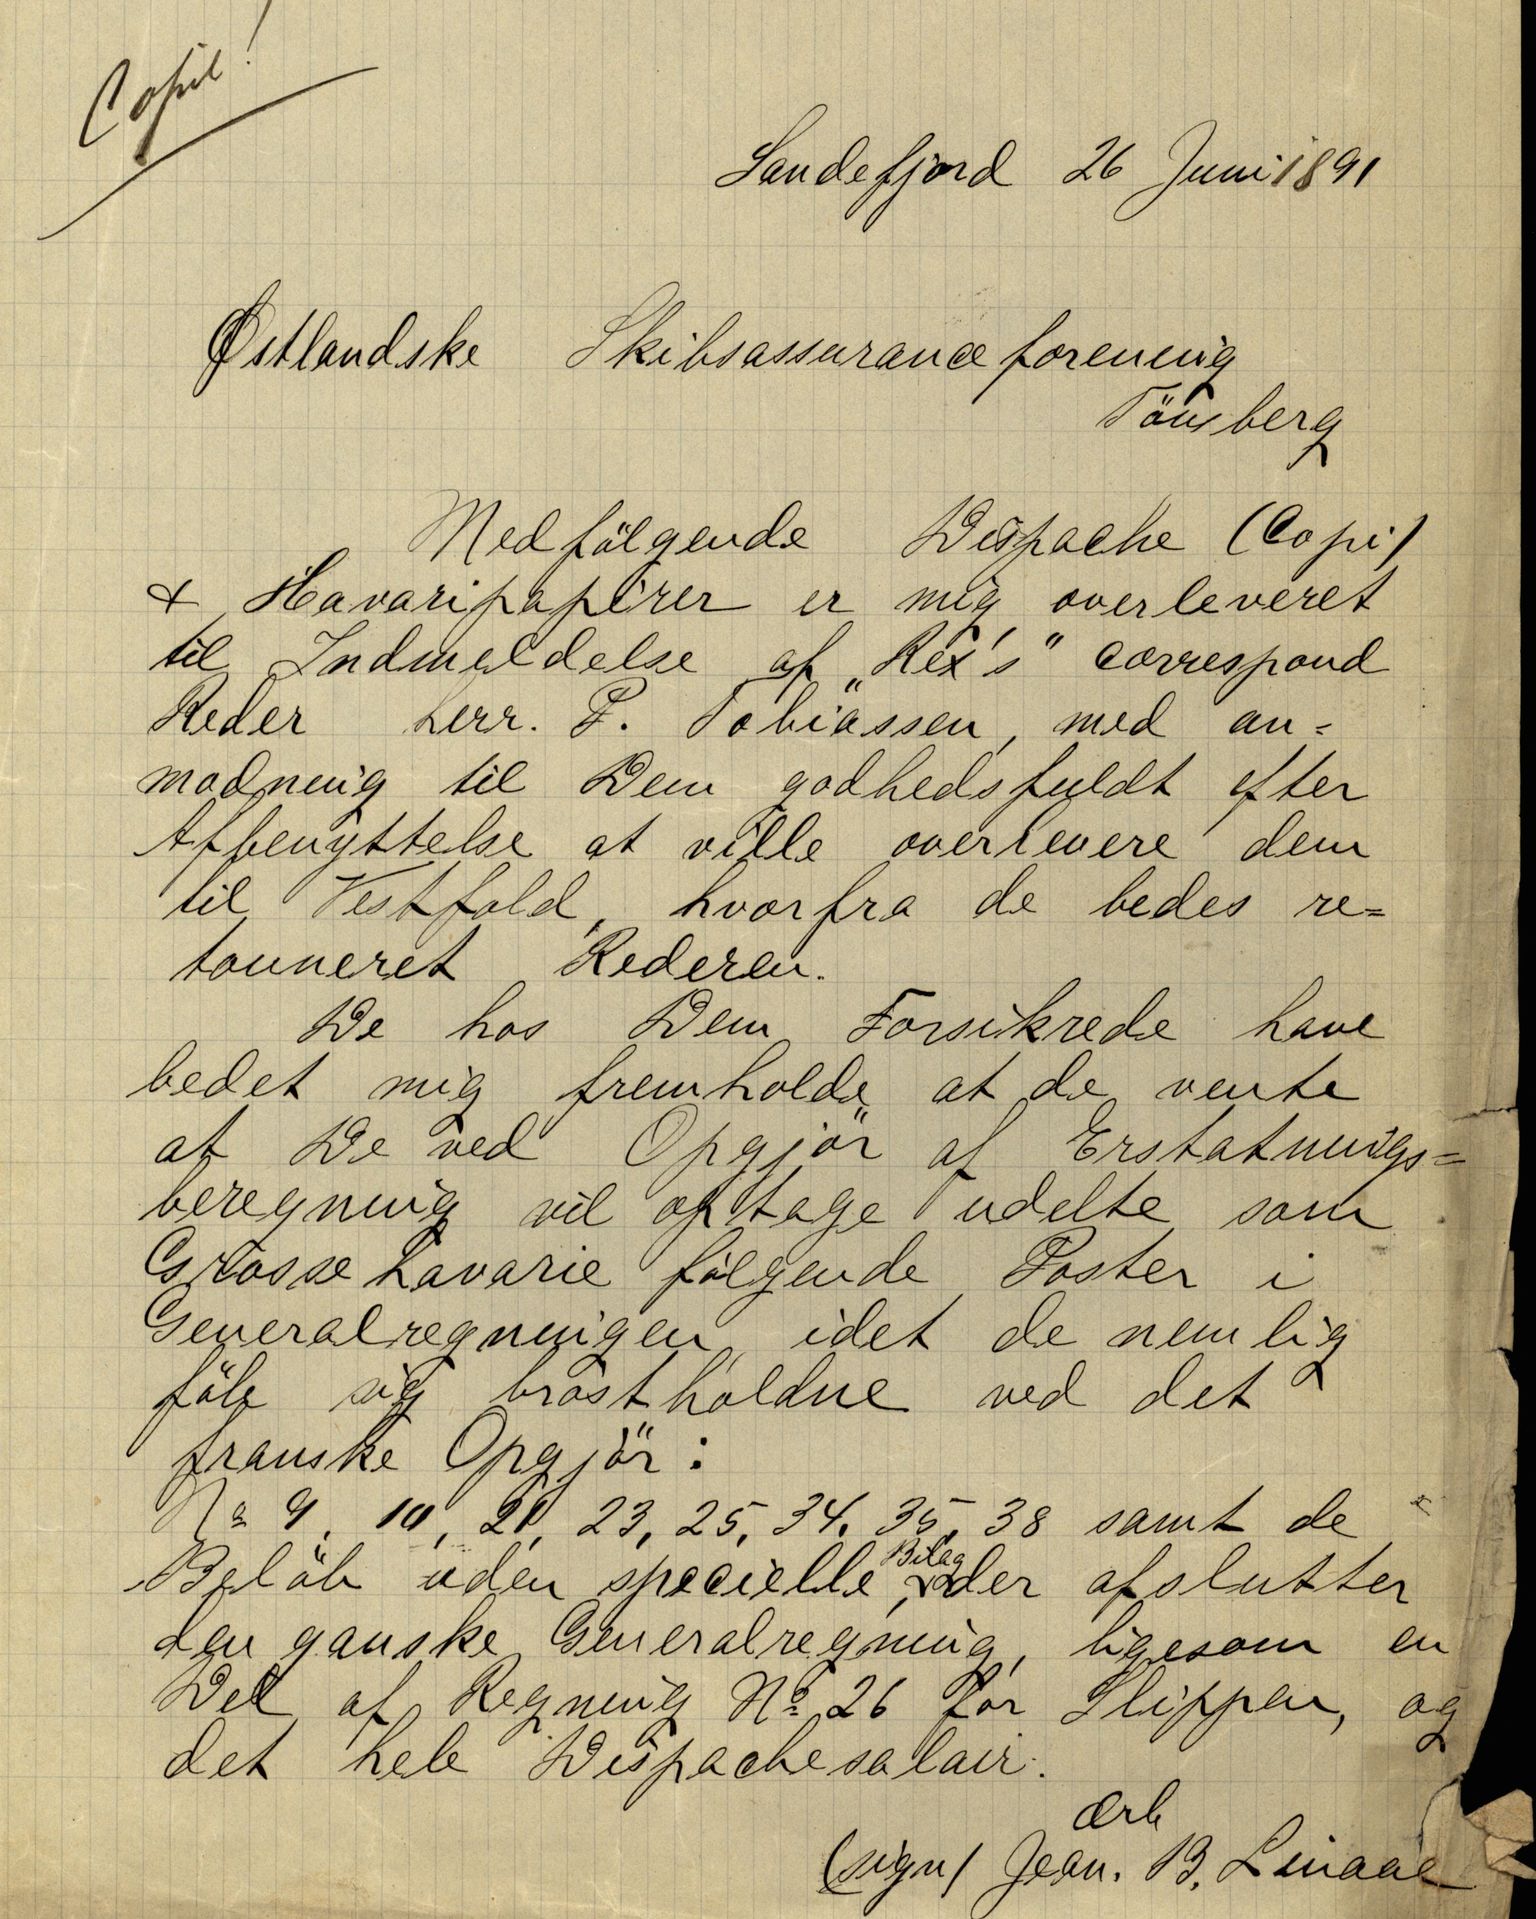 Copie!
Sandefjord 26 Juni 1891
Østlandske Skibsassuranceforening
Tönsberg
Medfölgende Dispache (Copi)
& Havaripapirer er mig overleveret
til Indmeldelse af „Rex's" correspond
Reder herr. P. Tobiassen, med an=
modning til Dem godhedsfuldt efter
Afbenyttelse at ville overlevere dem
til Vestfold, hvorfra de bedes re=
tourneret Rederen.
De hos Dem Forsikrede have
bedet mig fremholde at de vente
at De ved Opgjör af Erstatnings=
beregning vil optage udelte som
Grosse havarie fölgende Poster i
Generalregningen, idet de nemlig
föle sig bröstholdne ved det
franske Opgjör:
No 9, 10, 21, 23, 25, 34, 35, 38 samt de
Belöb uden specielle Bilag, der afslutter
den ganske Generalregning, ligesom en
Del af Regning No 26 for Slippen, og
det hele Dispachesalair.
Ærb
(sign) Jean. B. Linaae